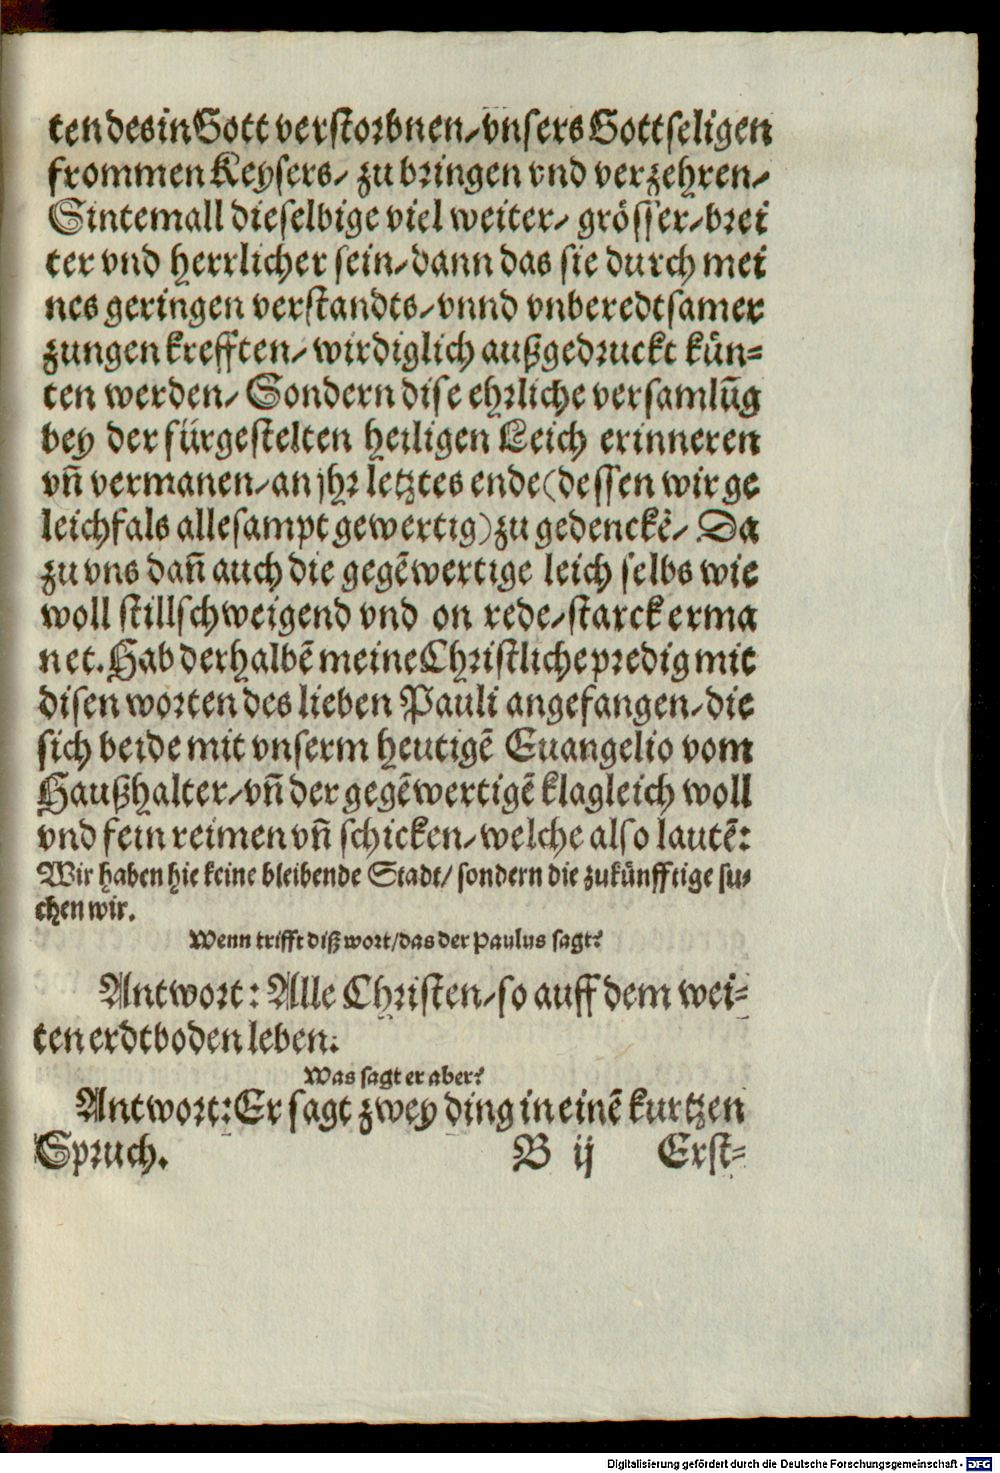 ten des in Gott verstorbnen/ vnsers Gottseligen
frommen Keysers/ zu bringen vnd verzehren/
Sintemall dieselbige viel weiter/ grösser/ brei
ter vnd herrlicher sein/ dann das sie durch mei
nes geringen verstandts/ vnnd vnberedtsamer
zungen krefften/ wirdiglich außgedruckt kün=
ten werden/ Sondern dise ehrliche versamlūg
bey der fürgestelten heiligen Leich erinneren
vn̄ vermanen/ an jhr letztes ende (dessen wir ge
leichfals allesampt gewertig) zu gedenckē/ Da
zu vns dan̄ auch die gegēwertige leich selbs wie
woll stillschweigend vnd on rede/ starck erma
net. Hab derhalbē meine Christliche predig mit
disen worten des lieben Pauli angefangen/ die
sich beide mit vnserm heutigē Euangelio vom
Haußhalter/ vn̄ der gegēwertigē klagleich woll
vnd fein reimen vn̄ schicken/ welche also lautē:
Wir haben hie keine bleibende Stadt/ sondern die zukünfftige su=
chen wir.
Wenn trifft diß wort/ das der Paulus sagt?
Antwort: Alle Christen/ so auff dem wei=
ten erdtboden leben.
Was sagt er aber?
Antwort: Er sagt zwey ding in einē kurtzen
Spruch. B ij Erst=
Digitalisierung gefördert durch die Deutsche Forschungsgemeinschaft - DFG